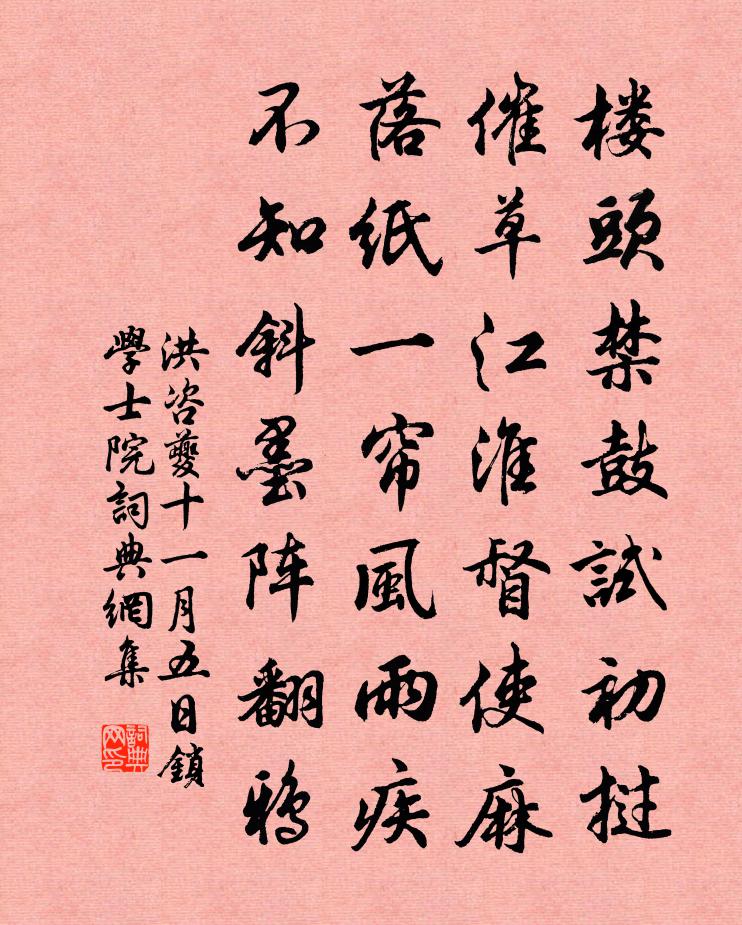 楼頭禁鼓試初撾
催草江淮督使麻
落紙一帘風雨疾
不知斜墨阵翻鸦
洪咨夔十一月五日鎖
學士院詞典網集
詞典網印